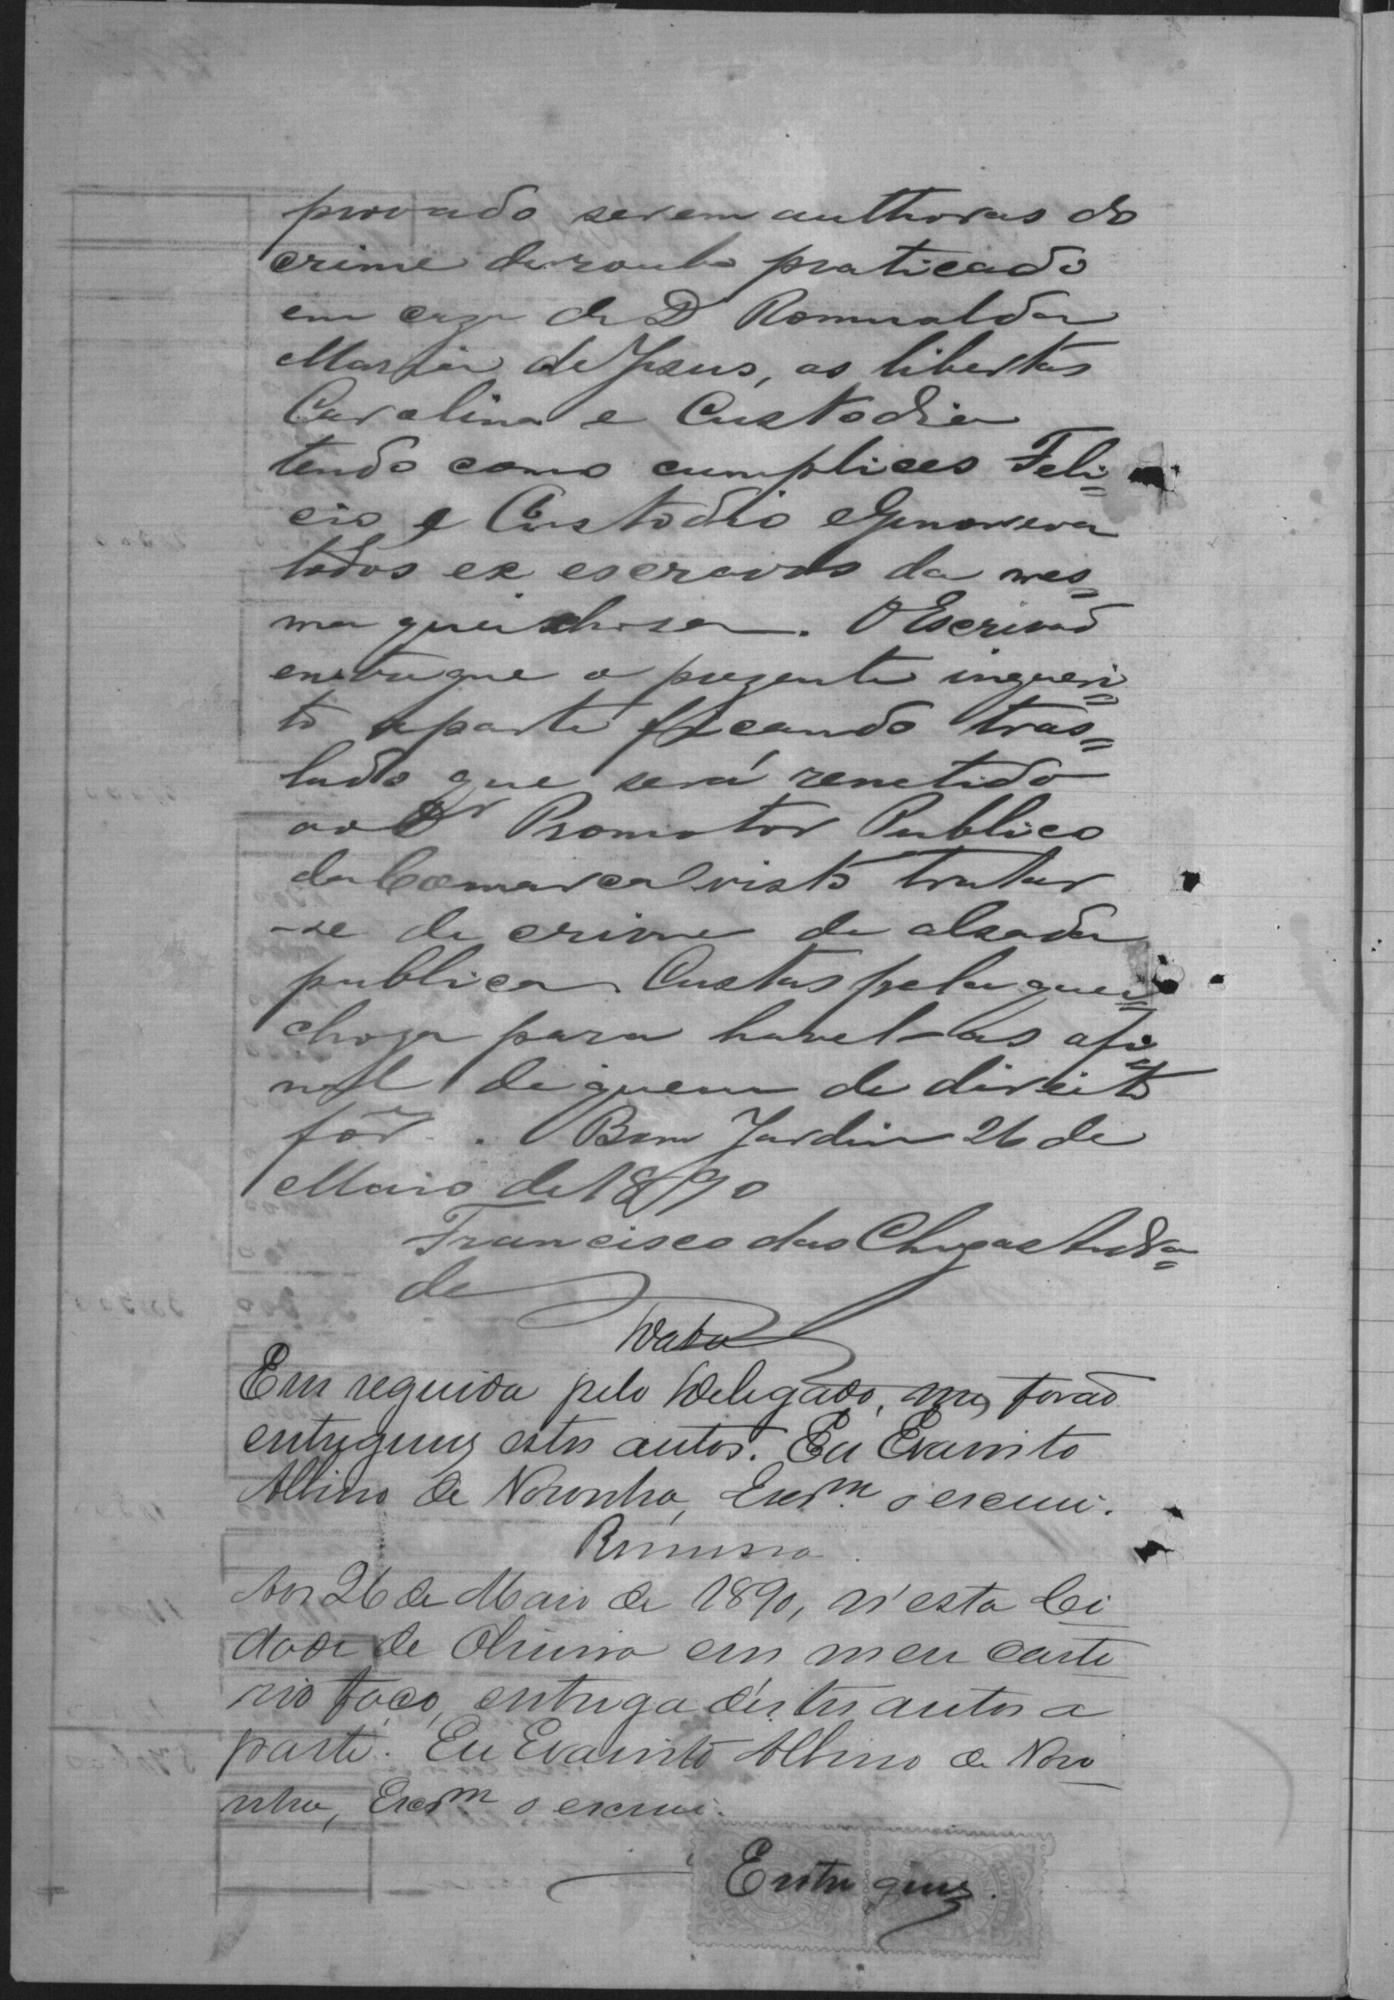 provado serem authoras do
crime de roubo praticado
em caza de D Romualda
Maria de Jesus, as libertas
Carolina e Custodia
tendo como cumplices Feli=
cio e Custodio e Genoveva
todos ex escravos da mes=
ma queichosa. O Escrivaõ
entregue o prezente inqueri=
to a parte ficando tras=
lado que será remetido
ao Dr Promotor Publico
da Comarca visto tratar
-se de crime de alsada
publica. Custas pela quei=
choza para havel-as afi=
nal de quem de direito
fôr. Bom Jardin 26 de
Maio de 1890
Francisco das Chagas Andra=
de
Data
Em seguida pelo Delegado, me foraõ
entregues estes autos. Eu Evaristo
Albino de Noronha, Escrm o escrevi.
Remessa
Aos 26 de Maio de 1890, n'esta Ci
dade de em meu carto
rio faço entrega d'estes autos a
parte. Eu Evaristo Albino de Noro
nha, Escrm o escrevi.
Entreguez.